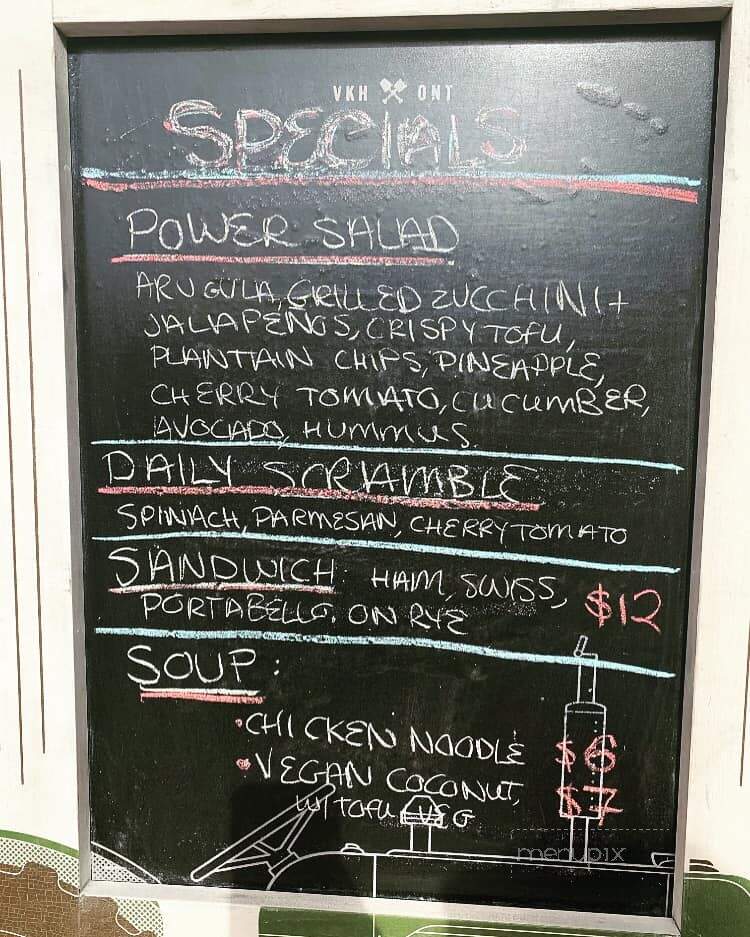 VKH ONT
SPECIALS
POWER SALAD
ARUGULA, GRILLED ZUCCHINI +
JALAPENOS, CRISPY TOFU,
PLANTIAIN CHIPS, PINEAPPLE,
CHERRY TOMATO, CUCUMBER,
AVOCADO, HUMMUS.
DAILY SCRAMBLE
SPINACH, PARMESAN, CHERRY TOMATO
SANDWICH: HAM, SWISS, $12
PORTABELLO. ON RYE
SOUP:
• CHICKEN NOODLE $6
• VEGAN COCONUT, $7
W/ TOFU + VEG
menupix